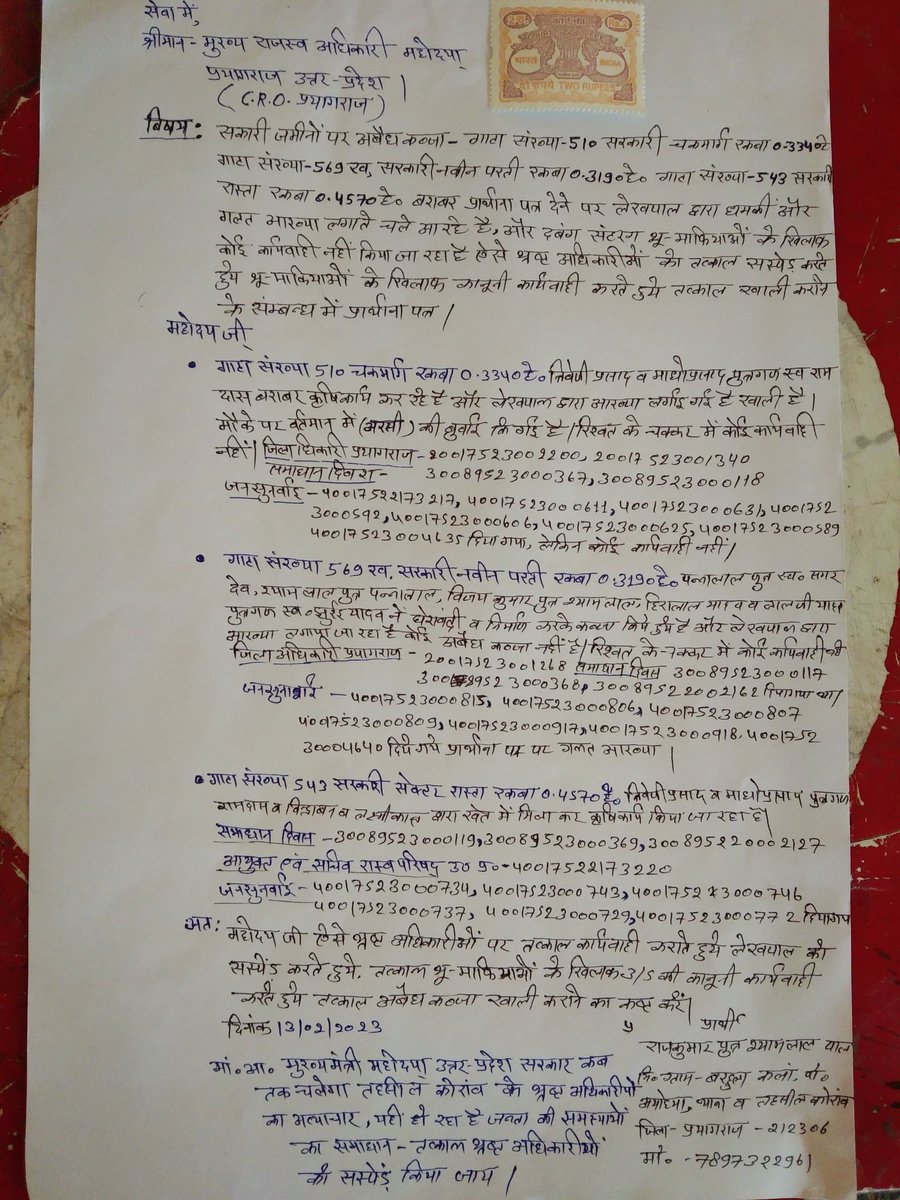 सेवा में,
श्रीमान - मुख्य राजस्व अधिकारी महोदय
प्रयागराज उत्तर-प्रदेश |
(C.R.O. प्रयागराज)
भारत INDIA
दो रुपये TWO RUPEES
विषय: सकारी जमीनों पर अबैध कब्जा - गाटा संख्या-510 सरकारी चकमार्ग रकबा 0.3340हे०
गाटा संख्या-569 ख, सरकारी नवीन परती रकबा 0.3190हे० गाटा संख्या-543 सरकारी
रास्ता रकबा 0.4570हे० बराबर प्रार्थाना पत्र देने पर लेखपाल द्वारा धमकी और
गलत आख्या लगाते चले आ रहे है, और दबंग भू-माफियाओं के खिलाफ
कोई कार्यवाही नहीं किया जा रहा है ऐसे भ्रष्ट अधिकारीओं को तत्काल सस्पेंड करते
हुये भू-माफियाओं के खिलाफ कानूनी कार्यवाही करते हुये तत्काल खाली कराने
के संम्बन्ध में प्रार्थाना पत्र |
महोदय जी
• गाटा संख्या 510 चकमार्ग रकबा 0.3340हे० त्रिवेणी प्रसाद व माधोप्रसाद पुत्रगण स्व राम
दास बराबर कृषि कार्य कर रहे है और लेखपाल द्वारा आख्या लगाई गई है खाली है |
मौके पर वर्तमान में (अरसी) की बुवाई कि गई है | रिश्वत के चक्कर में कोई कार्यवाही
नहीं | जिलाधिकारी प्रयागराज - 20017523002200, 20017523001340
समाधान दिवस - 30089523000367, 30089523000118
जनसुनवाई - 40017522173217, 40017523000611, 40017523000631, 4001752
3000592, 40017523000606, 40017523000625, 40017523000589
40017523004635 दिया गया, लेकिन कोई कार्यवाही नहीं |
• गाटा संख्या 569 ख, सरकारी नवीन परती रकबा 0.3190हे० पन्नालाल पुत्र स्व०
देव, श्याम लाल पुत्र पन्नालाल, विजय कुमार पुत्र श्याम लाल, हिरालाल यादव व लालजी यादव
पुत्रगण स्व० यादव ने घेराबंदी व निर्माण करके कब्जा किये हुये है और लेखपाल द्वारा
आख्या लगाया जा रहा है कोई अबैध कब्जा नहीं है | रिश्वत के चक्कर में कोई कार्यवाही नही
जिला अधिकारी प्रयागराज - 20017523001268 समाधान दिवस 30089523000117
30089523000368, 30089522002162 दिया गया था |
जनसुनवाई - 40017523000815, 40017523000806, 40017523000807
40017523000809, 40017523000917, 40017523000918, 4001752
30004640 दिये गये प्रार्थाना पत्र पर गलत आख्या |
• गाटा संख्या 543 सरकारी सेक्टर रास्ता रकबा 0.4570हे० त्रिवेणी प्रसाद व माधोप्रसाद पुत्रगण
व व द्वारा खेत में मिला कर कृषि कार्य किया जा रहा है |
समाधान दिवस - 30089523000119, 30089523000369, 30089522002127
आयुक्त एवं सचिव रास्व परिषद उ० प्र० - 40017522173220
जनसुनवाई - 40017523000734, 40017523000743, 40017523000746
40017523000737, 40017523000729, 40017523000772 दिया गया
अत: महोदय जी ऐसे भ्रष्ट अधिकारीओं पर तत्काल कार्यवाही कराते हुये लेखपाल को
सस्पेंड करते हुये, तत्काल भू-माफियाओं के खिलाफ 3/5 की कानूनी कार्यवाही
करते हुये तत्काल अबैध कब्जा खाली कराने का कष्ट करें |
दिनांक 13/02/2023
प्रार्थी
राजकुमार पुत्र श्यामलाल पाल
नि० ग्राम - बरहुला कलां, पो०
अयोध्या, थाना व तहसील कोरांव
जिला - प्रयागराज - 212306
मो० - 7897322961
मां. आ. मुख्यमंत्री महोदय उत्तर-प्रदेश सरकार कब
तक चलेगा तहसील कोरांव के भ्रष्ट अधिकारीयो
का अत्याचार, यही हो रहा है जनता की समस्याओं
का समाधान - तत्काल भ्रष्ट अधिकारीओं
को सस्पेंड किया जाय |